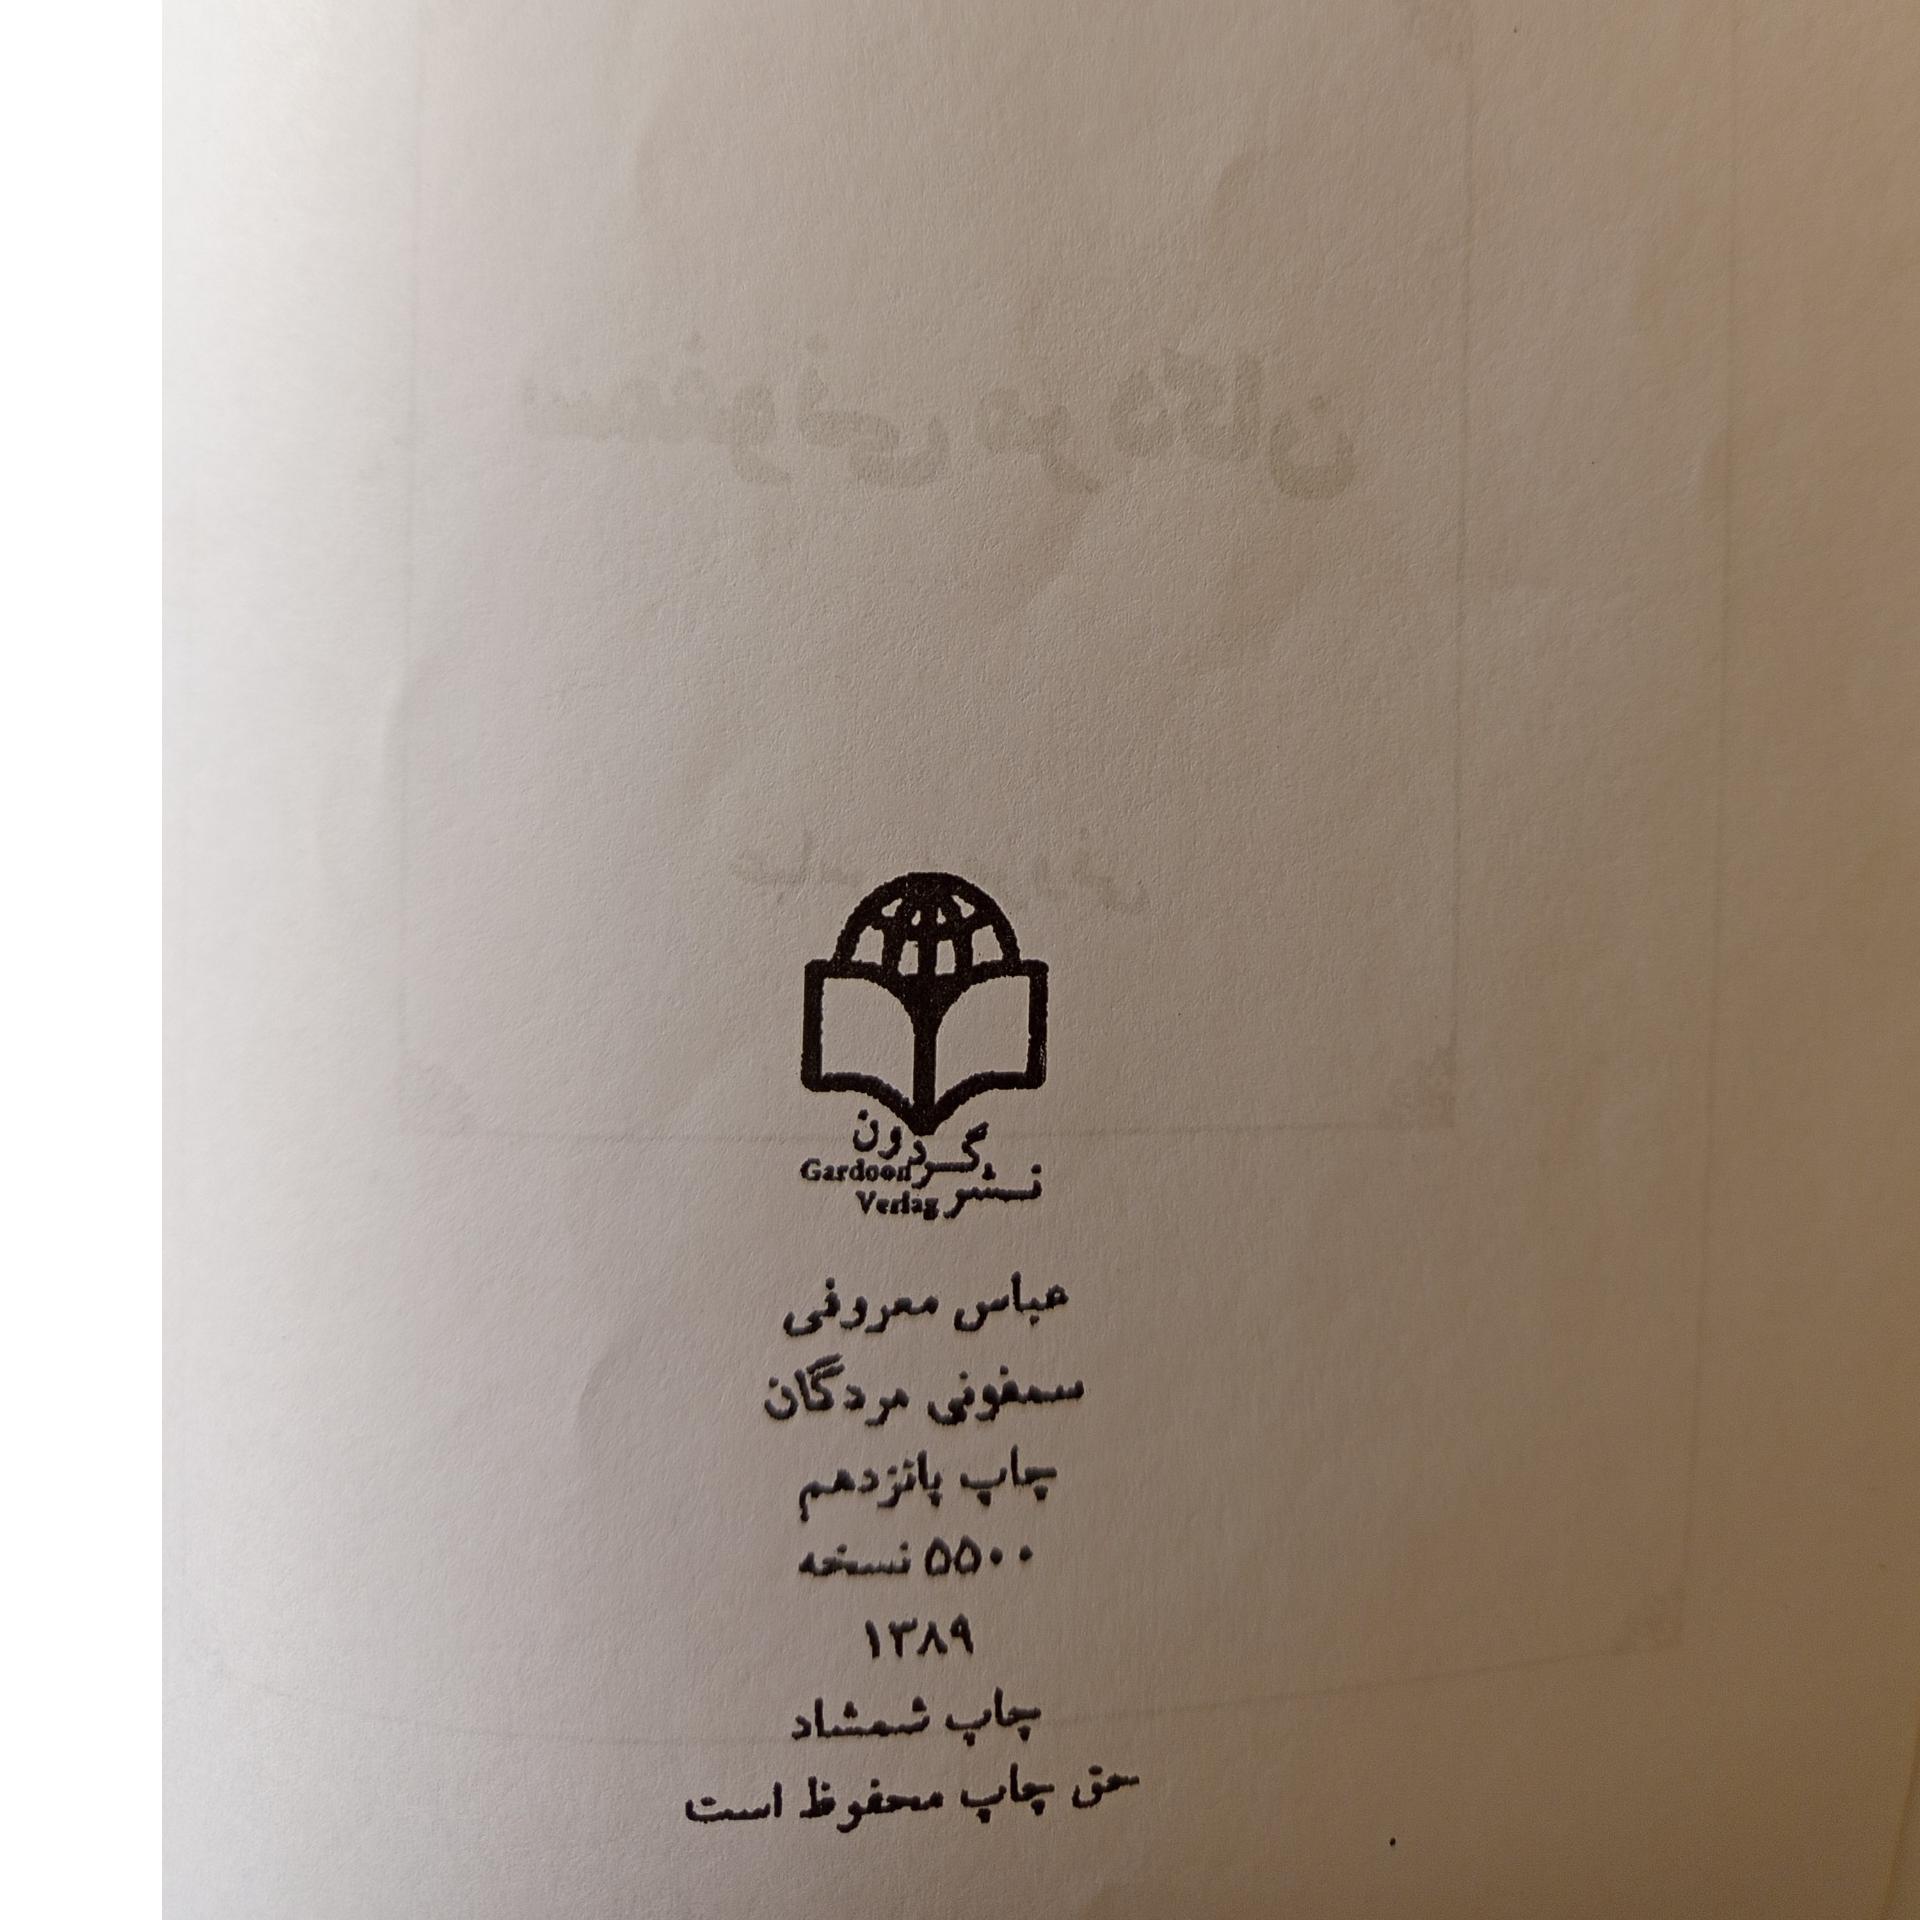 سمفونی مردگان
عباس معروفی
نشر گردون
Gardoon
Verlag
عباس معروفی
سمفونی مردگان
چاپ پانزدهم
۵۵۰۰ نسخه
۱۳۸۹
چاپ شمشاد
حق چاپ محفوظ است